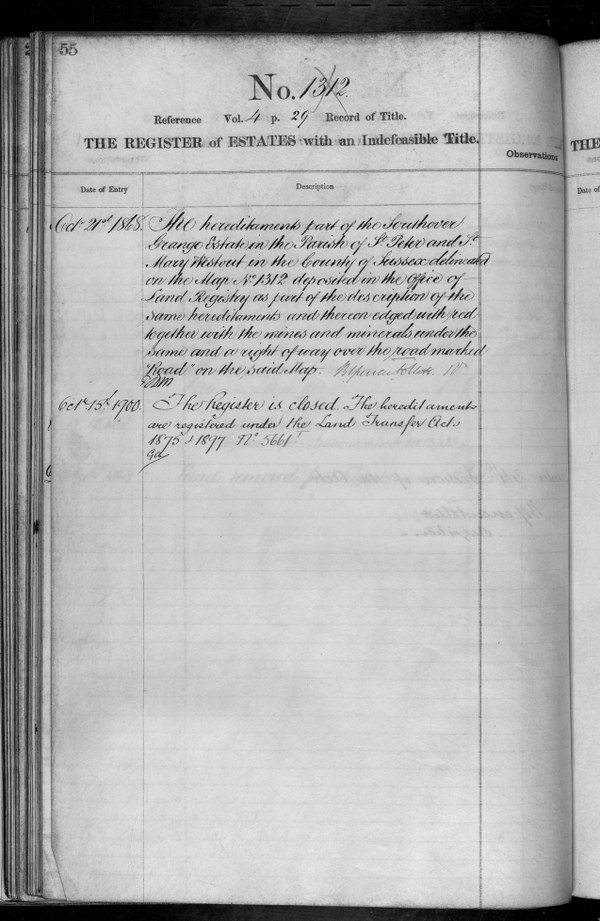 55
No. 1312.
Reference Vol. 4 p. 29 Record of Title.
THE REGISTER of ESTATES with an Indefeasible Title.
Observations
Date of Entry
Description
Octr 21st 1868. The hereditaments part of the Southover
Grange Estate in the Parish of St Peter and St
Mary Westout in the County of Sussex delineated
on the Map No 1312 deposited in the Office of
Land Registry as part of the description of the
same hereditaments and thereon edged with red
together with the mines and minerals under the
same and a right of way over the road marked
"Road" on the said Map.
Octr 15th 1900. The Register is closed. The hereditaments
are registered under the Land Transfer Acts
1875 & 1897 No 5661
THE
Date of